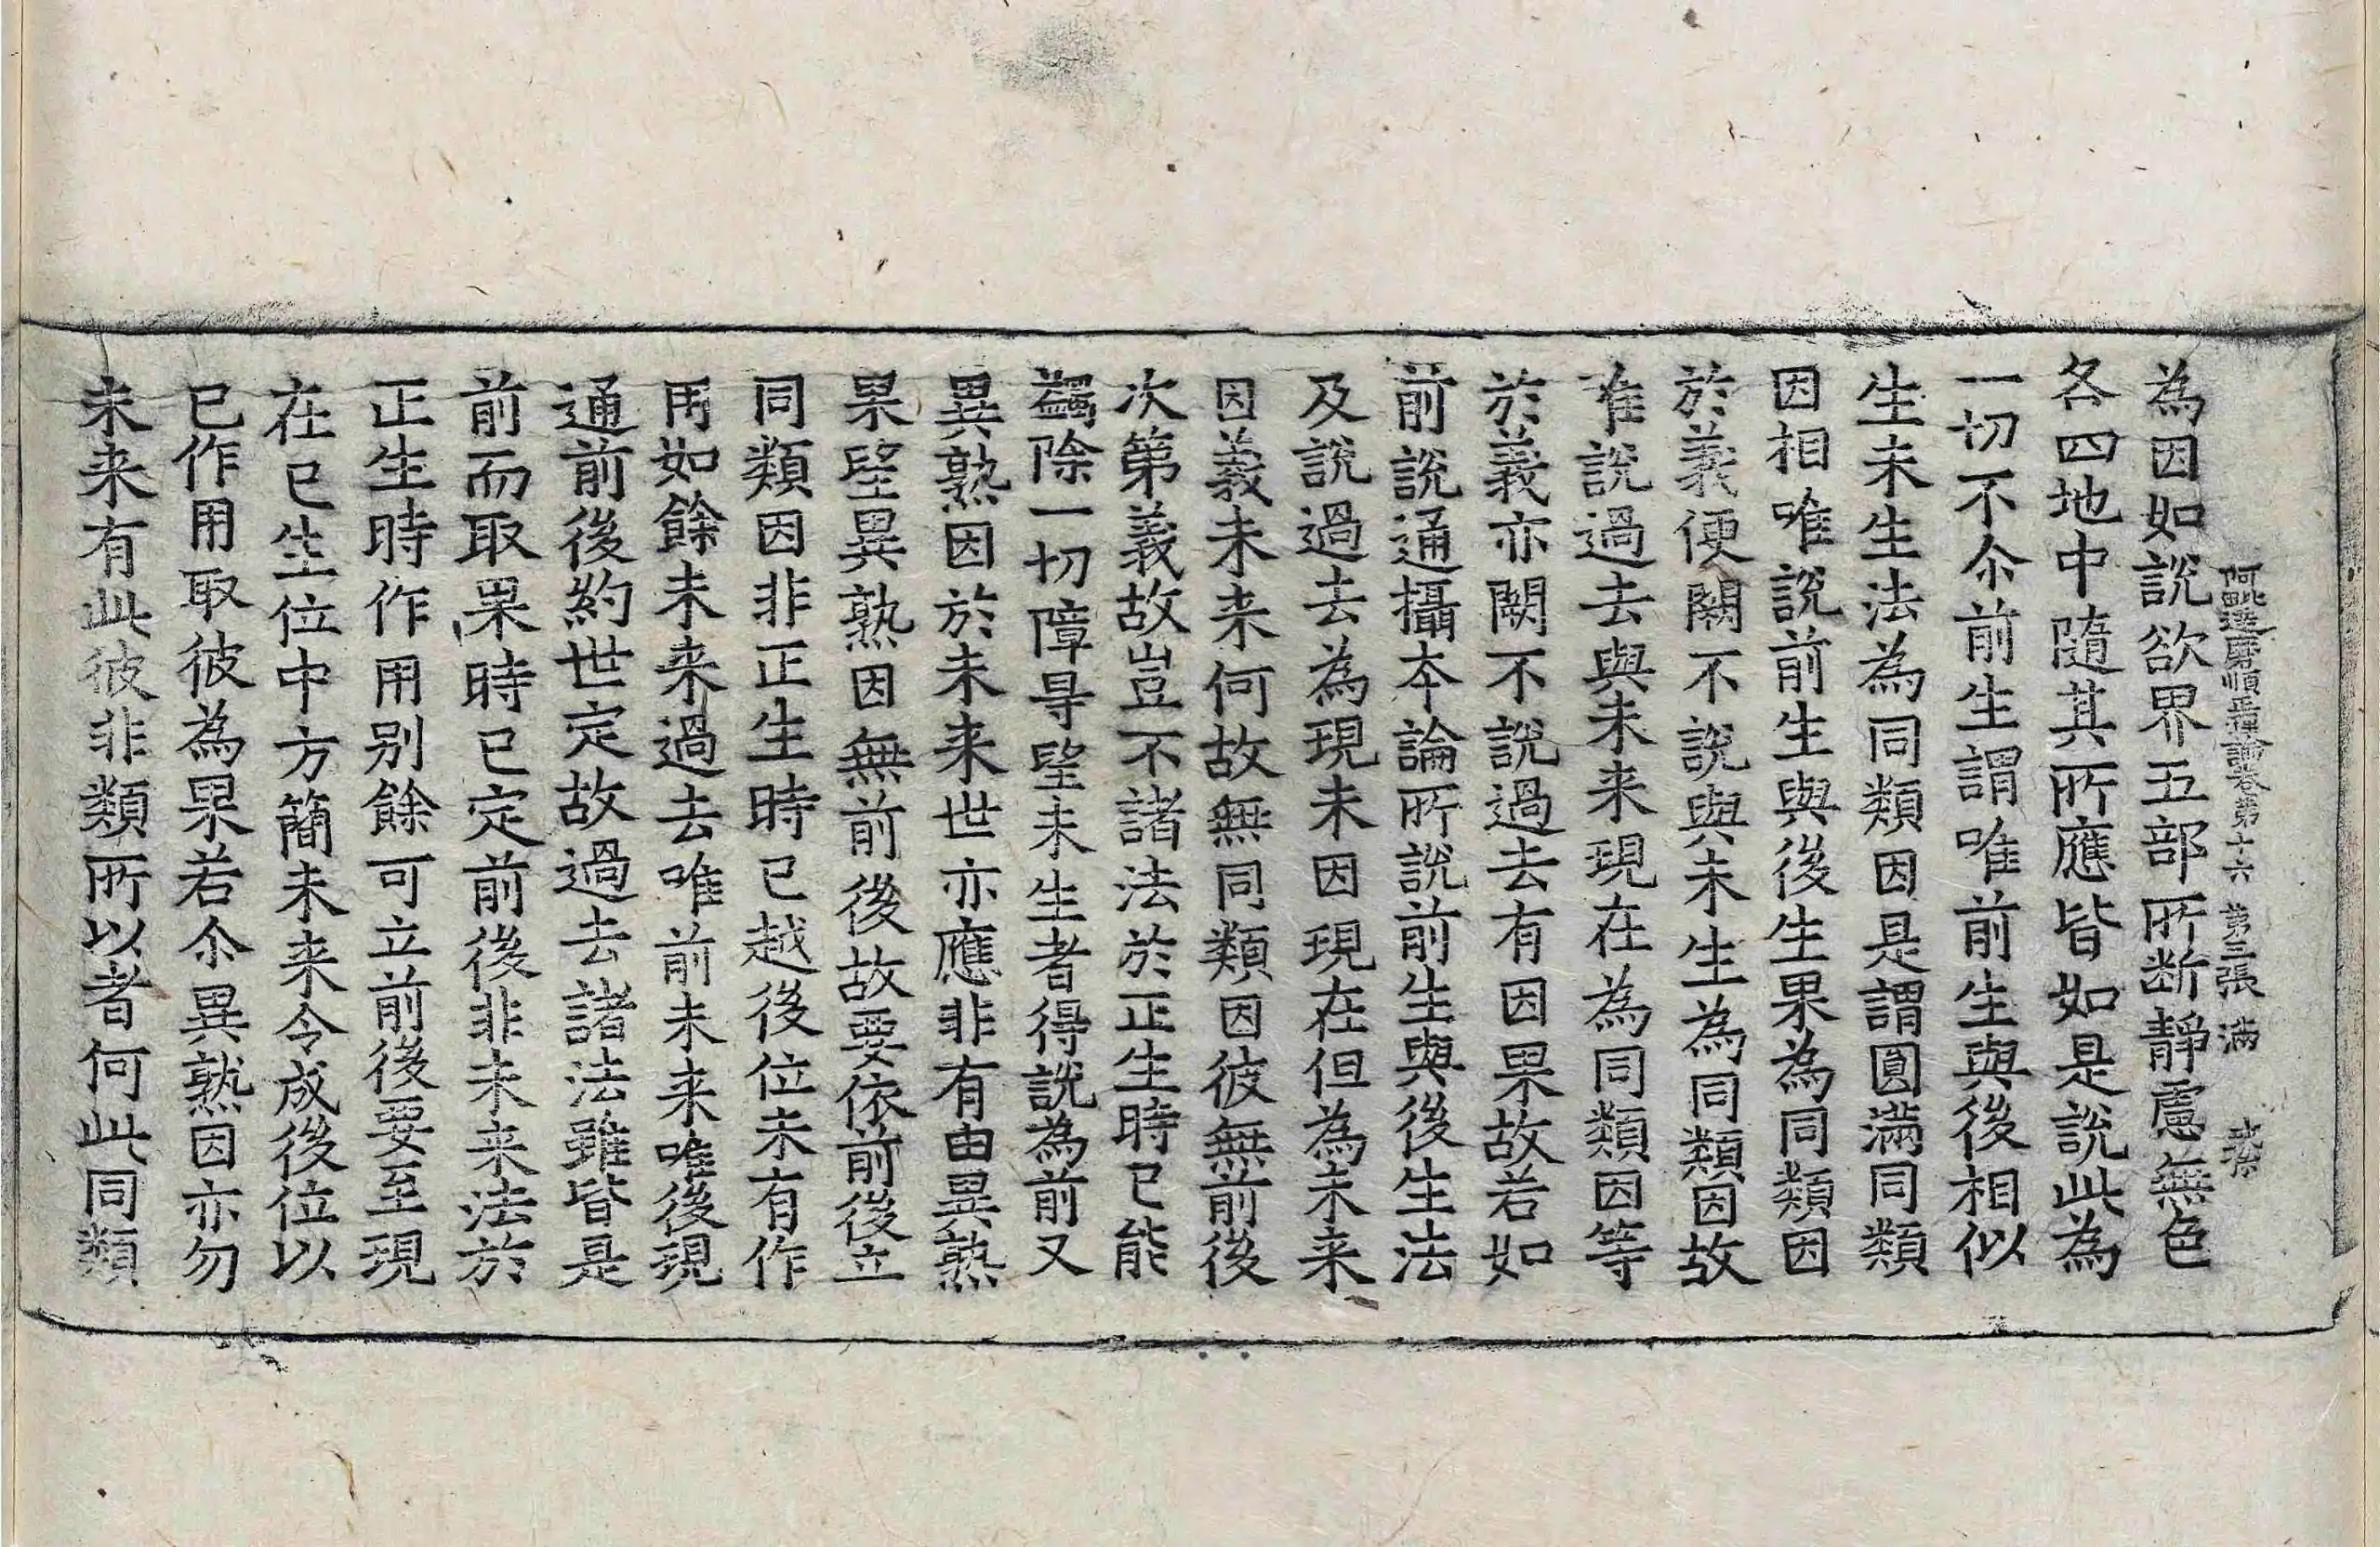 阿毗達磨順正理論卷第十六 第三張 滿
為因如說欲界五部所断靜慮無色
各四地中隨其所應皆如是說此為
一切不尒前生謂唯前生與後相似
生未生法為同類因是謂圓滿同類
因相唯說前生與後生果為同類因
於義便闕不說與未生為同類因故
唯說過去與未来現在為同類因等
於義亦闕不說過去有因果故若如
前說通攝夲論所說前生與後生法
及說過去為現未因現在但為未来
因義未来何故無同類因彼無前後
次第義故豈不諸法於正生時已能
蠲除一切障㝵望未生者得說為前又
異熟因於未来世亦應非有由異熟
果望異熟因無前後故要依前後立
同類因非正生時已越後位未有作
用如餘未来過去唯前未来唯後現
通前後約世定故過去諸法雖皆是
前而取果時已定前後非未来法於
正生時作用別餘可立前後要至現
在已生位中方簡未来令成後位以
已作用取彼為果若尒異熟因亦勿
未来有此彼非類所以者何此同類